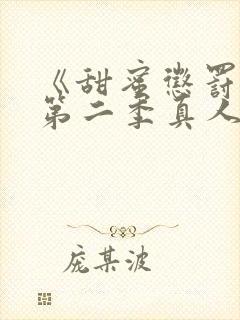 《甜蜜惩罚
第二季真人
庞某波